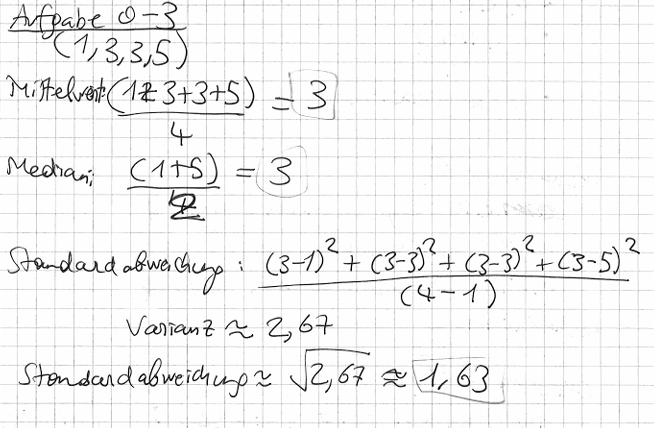 Aufgabe 0-3
(1,3,3,5)
Mittelwert: (1+3+3+5) / 4 = 3
Median: (1+5) / 2 = 3
Standardabweichung: (3-1)² + (3-3)² + (3-3)² + (3-5)² / (4-1)
Varianz ≈ 2,67
Standardabweichung ≈ √2,67 ≈ 1,63